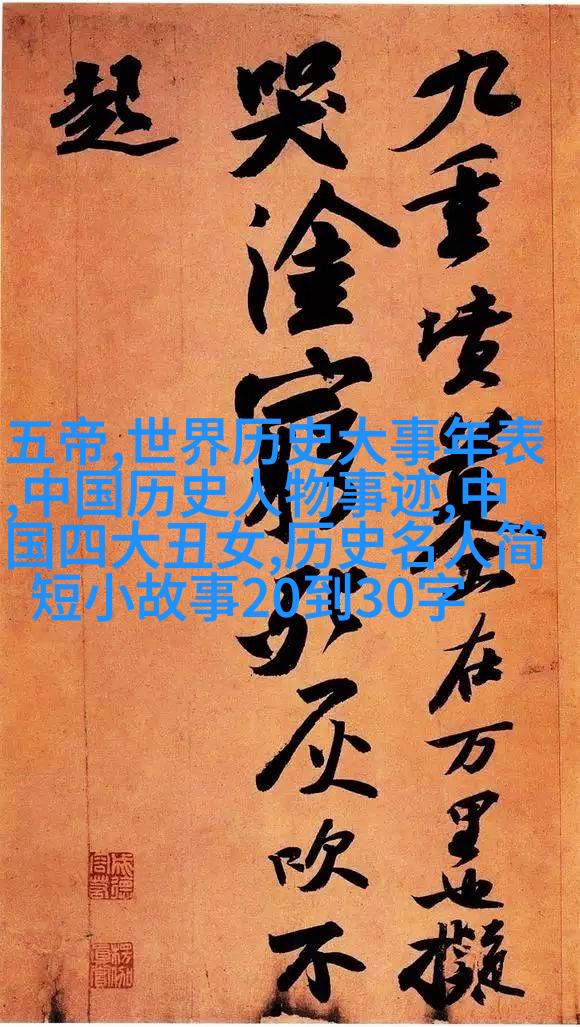 九重墳墓在万里也擬
哭塗窮死灰吹不
起
五帝,世界历史大事年表
,中国历史人物事迹,中
国四大丑女,历史名人简
短小故事20到30字